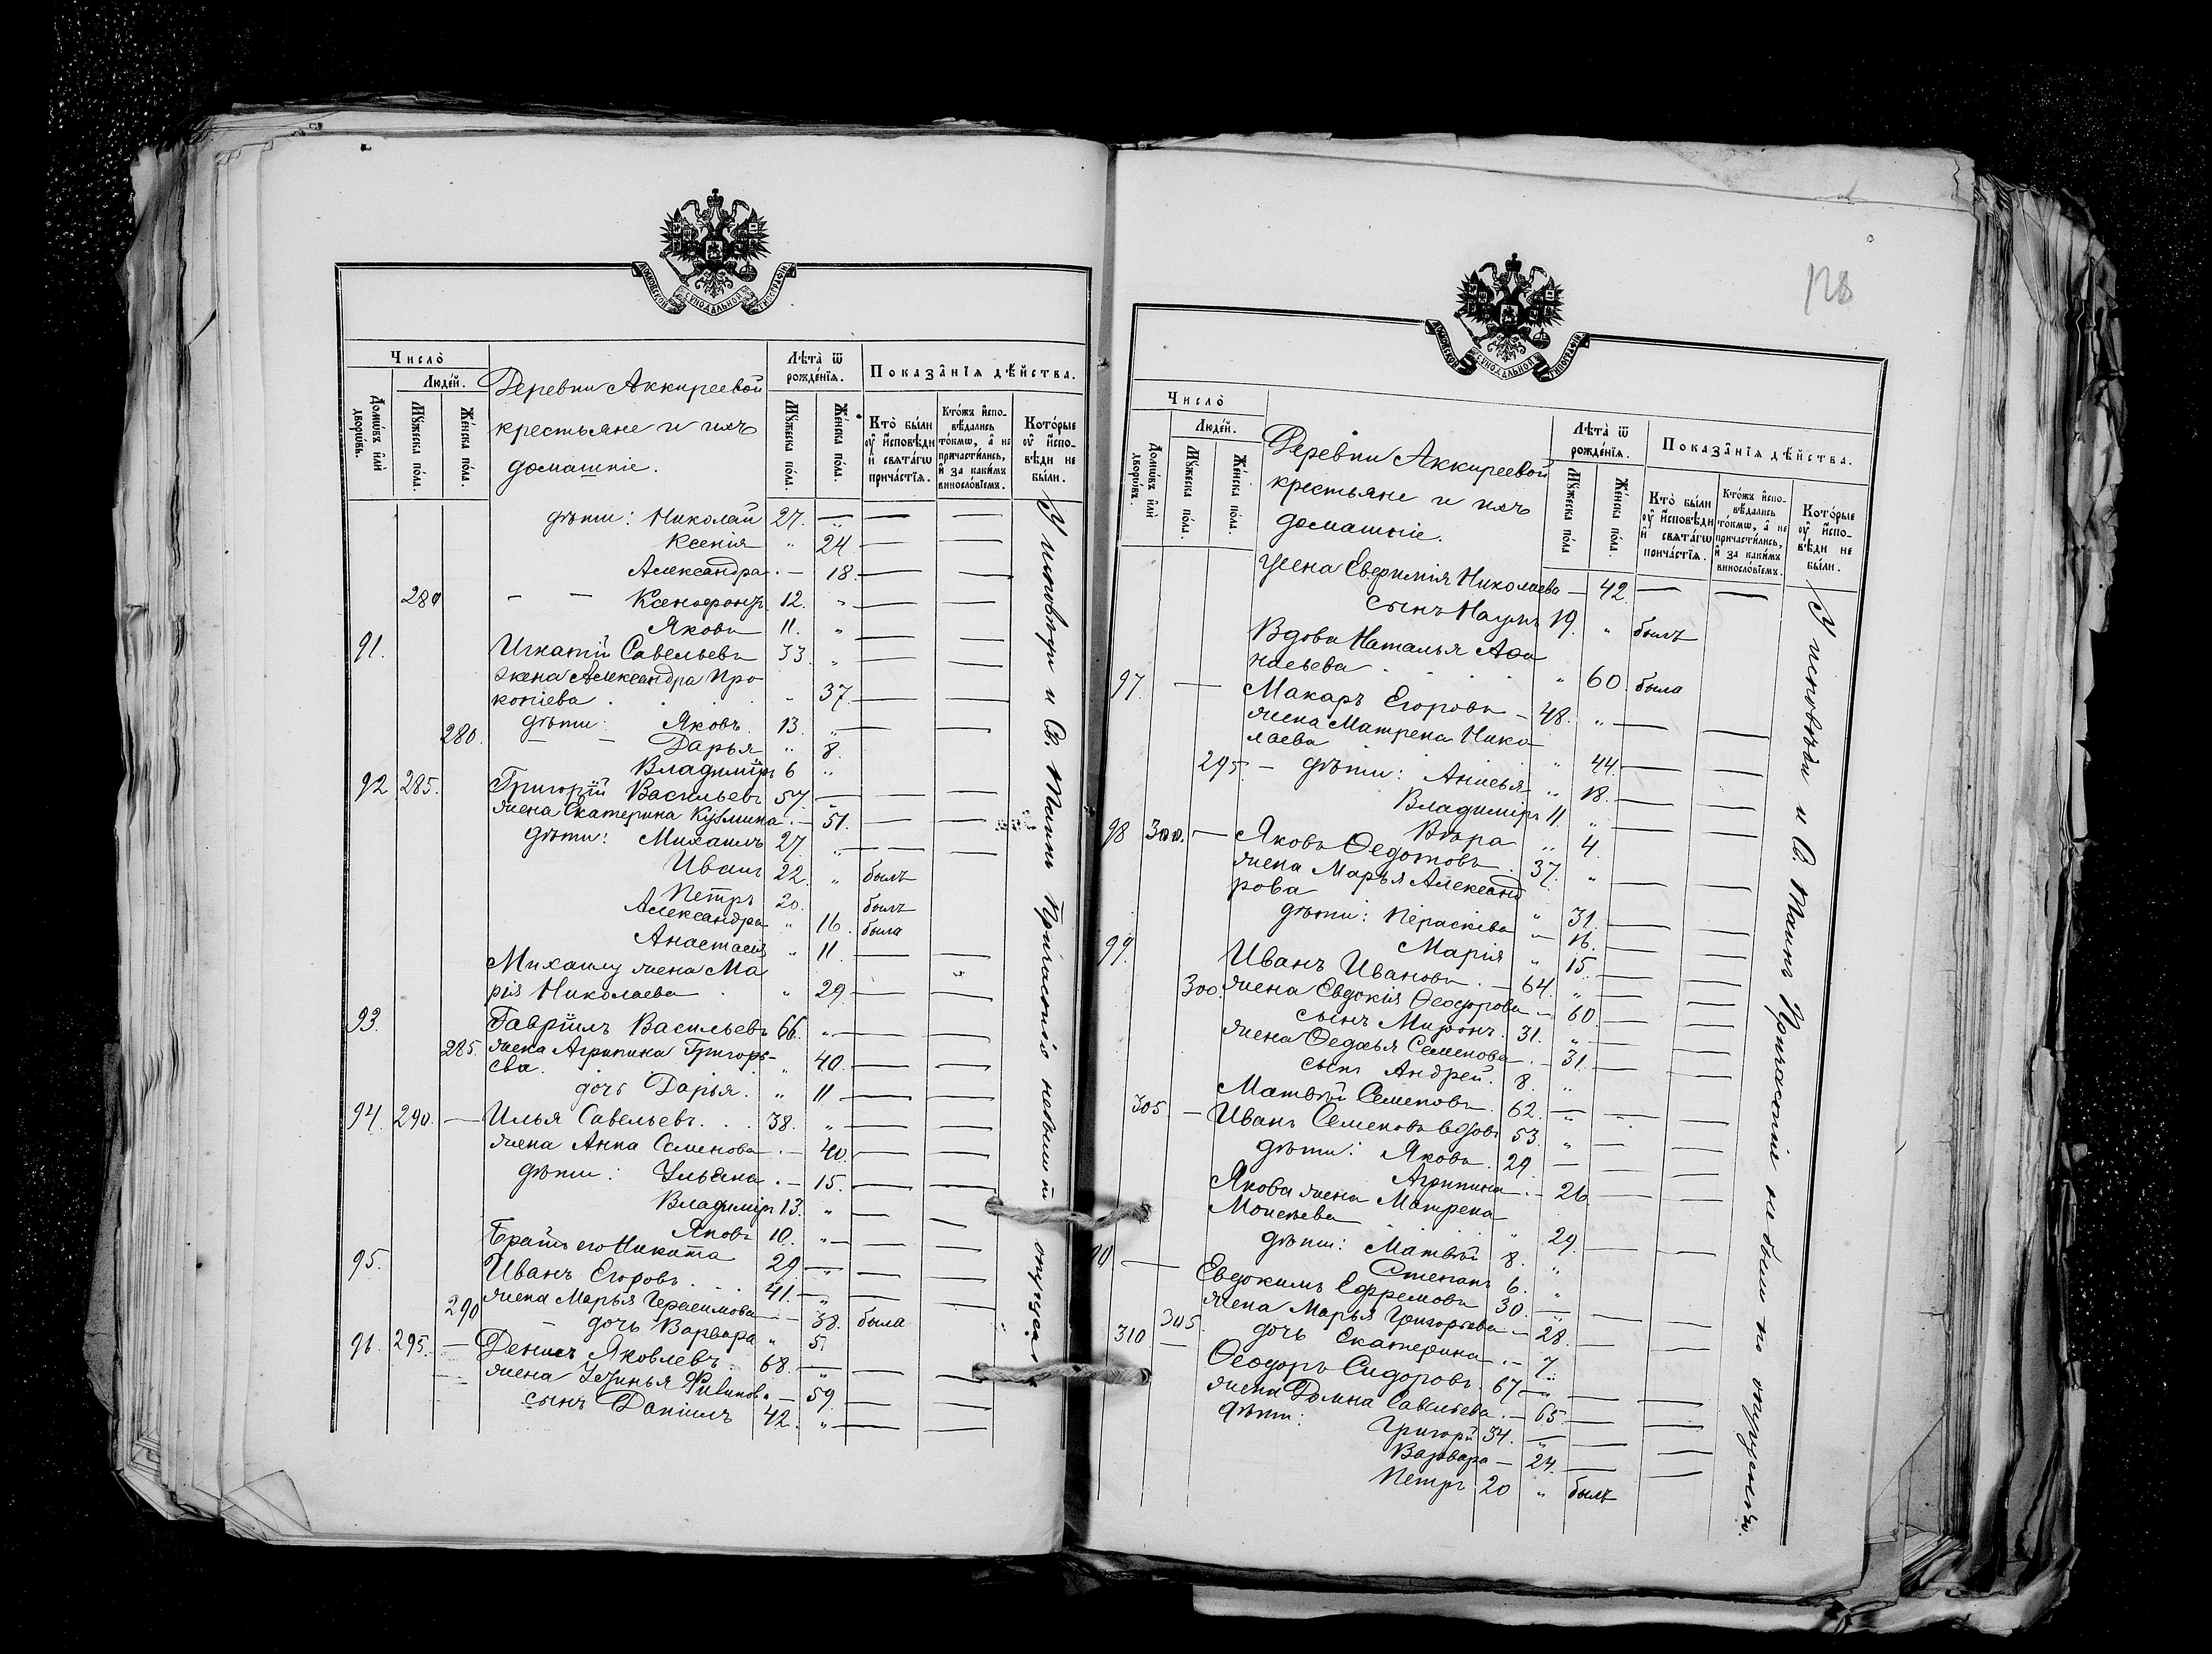 МОСКОВСКОЙ СѴНОДАЛЬНОЙ ТИПОГРАФІИ
Число̀
Люде́й.
Домѡ́въ и҆лѝ дворѡ́въ.
Мꙋ́жеска по́ла.
Же́нска по́ла.
Деревни Аккиреевой
крестьяне и ихъ
домашніе.
Лѣ́та ѿ рожде́нїѧ.
Мꙋ́жеска по́ла.
Же́нска по́ла.
Показа̑нїѧ дѣ́йства.
Кто̀ бы́ли ᲂу҆ и҆сповѣ́ди и҆ свѧта́гѡ прича́стїѧ.
Кто́жъ и҆сповѣ́дались то́кмѡ, а҆ не причасти́лись, и҆ за каки́мъ винослóвїемъ.
Кото́рые ᲂу҆ и҆сповѣ́ди не бы́ли.
дѣти: Николай 27. — „ — —
Ксенія „ 24 — —
Александра. — 18. — —
280 — — Ксенофонтъ 12. „ — —
Яковъ 11. „ — —
91. Игнатій Савельевъ 33. „ — —
жена Александра Про
копіева . . „ 37. — —
дѣти: Яковъ. 13. „ — —
280. — — Дарья „ 8.
Владиміръ 6 „
92 285. Григорій Васильевъ 57. — — —
жена Екатерина Кузмина. — 51. — —
дѣти: Михаилъ 27. „ — —
Иванъ 22. „ былъ
Петръ 20. былъ
Александра „ 16. была
Анастасія „ 11. — —
Михаилу жена Ма
рія Николаева . „ 29. — —
93. Гавріилъ Васильевъ 66. „ — —
285. жена Агрипина Григорь-
ева. „ 40. — —
дочь Дарья. „ 11 — —
94. 290. — Илья Савельевъ. . . 38. „ — —
жена Анна Семенова . — 40. — —
дѣти: Ульяна . — 15. — —
Владиміръ 13. „ — —
Яковъ 10. „ — —
Братъ его Никита 29 — „ — —
95. Иванъ Егоровъ. . . 41. — „ — —
жена Марья Герасимова — 38. была
290 — дочь Варвара „ 5.
96. 295. — Денисъ Яковлевъ. 68. — „ — —
жена — 59. — —
сынъ Даніилъ 42. „ — —
У исповѣди и Св. Таинъ Причастія не были по
128
МОСКОВСКОЙ СѴНОДАЛЬНОЙ ТИПОГРАФІИ
Число̀
Люде́й.
Домѡ́въ и҆лѝ дворѡ́въ.
Мꙋ́жеска по́ла.
Же́нска по́ла.
Деревни Аккиреевой
крестьяне и ихъ
домашніе.
Лѣ́та ѿ рожде́нїѧ.
Мꙋ́жеска по́ла
Же́нска по́ла.
Показа̑нїѧ дѣ́йства.
Кто̀ бы́ли ᲂу҆ и҆сповѣ́ди и҆ свѧта́гѡ прича́стїѧ.
Кто́жъ и҆сповѣ́дались то́кмѡ, а҆ не причасти́лись, и҆ за каки́мъ винослóвїемъ.
Кото́рые ᲂу҆ и҆сповѣ́ди не бы́ли.
жена Евфимія Николаева — 42. — —
сынъ Наумъ 19. „ былъ
Вдова Наталья Афа
насьева . . . . „ 60. была
97. — Макаръ Егоровъ — 48. „ — —
жена Матрена Нико
лаева „ 44. — —
295. — дѣти: Анисья „ 18. — —
Владиміръ 11. „ — —
Вѣра „ 4.
98 300. — Яковъ Ѳедотовъ . 37. „ — —
жена Марья Александ
рова „ 31. — —
дѣти: Параскева — 16. — —
Марія „ 15. — —
99. Иванъ Ивановъ . — 64. „ — —
300. жена Евдокія Ѳеодорова — 60. — —
сынъ Миронъ. 31. „ — —
жена Ѳедосья Семенова . — 31. — —
сынъ Андрей. 8. „
Матвѣй Семеновъ. 62. — — —
305. — Иванъ Семеновъ вдовъ 53. „ — —
дѣти: Яковъ. 29. — — —
Агрипина . — 26. — —
Якова жена Матрена
Моисеева „ 29. — —
дѣти: Матвѣй 8. „
Степанъ 6. „
— Евдокимъ Ефремовъ 30. — — —
жена Марья Григорьева — 28. — —
305. дочь Екатерина. — 7.
310 — Ѳеодоръ Сидоровъ. 67 — „ — —
жена Домна Савельева. — 65. — —
дѣти: Григорій 34. — „ — —
Варвара — 24. — —
Петръ. 20 „ былъ
У исповѣди и Св. Таинъ Причастія не были по опущенію.